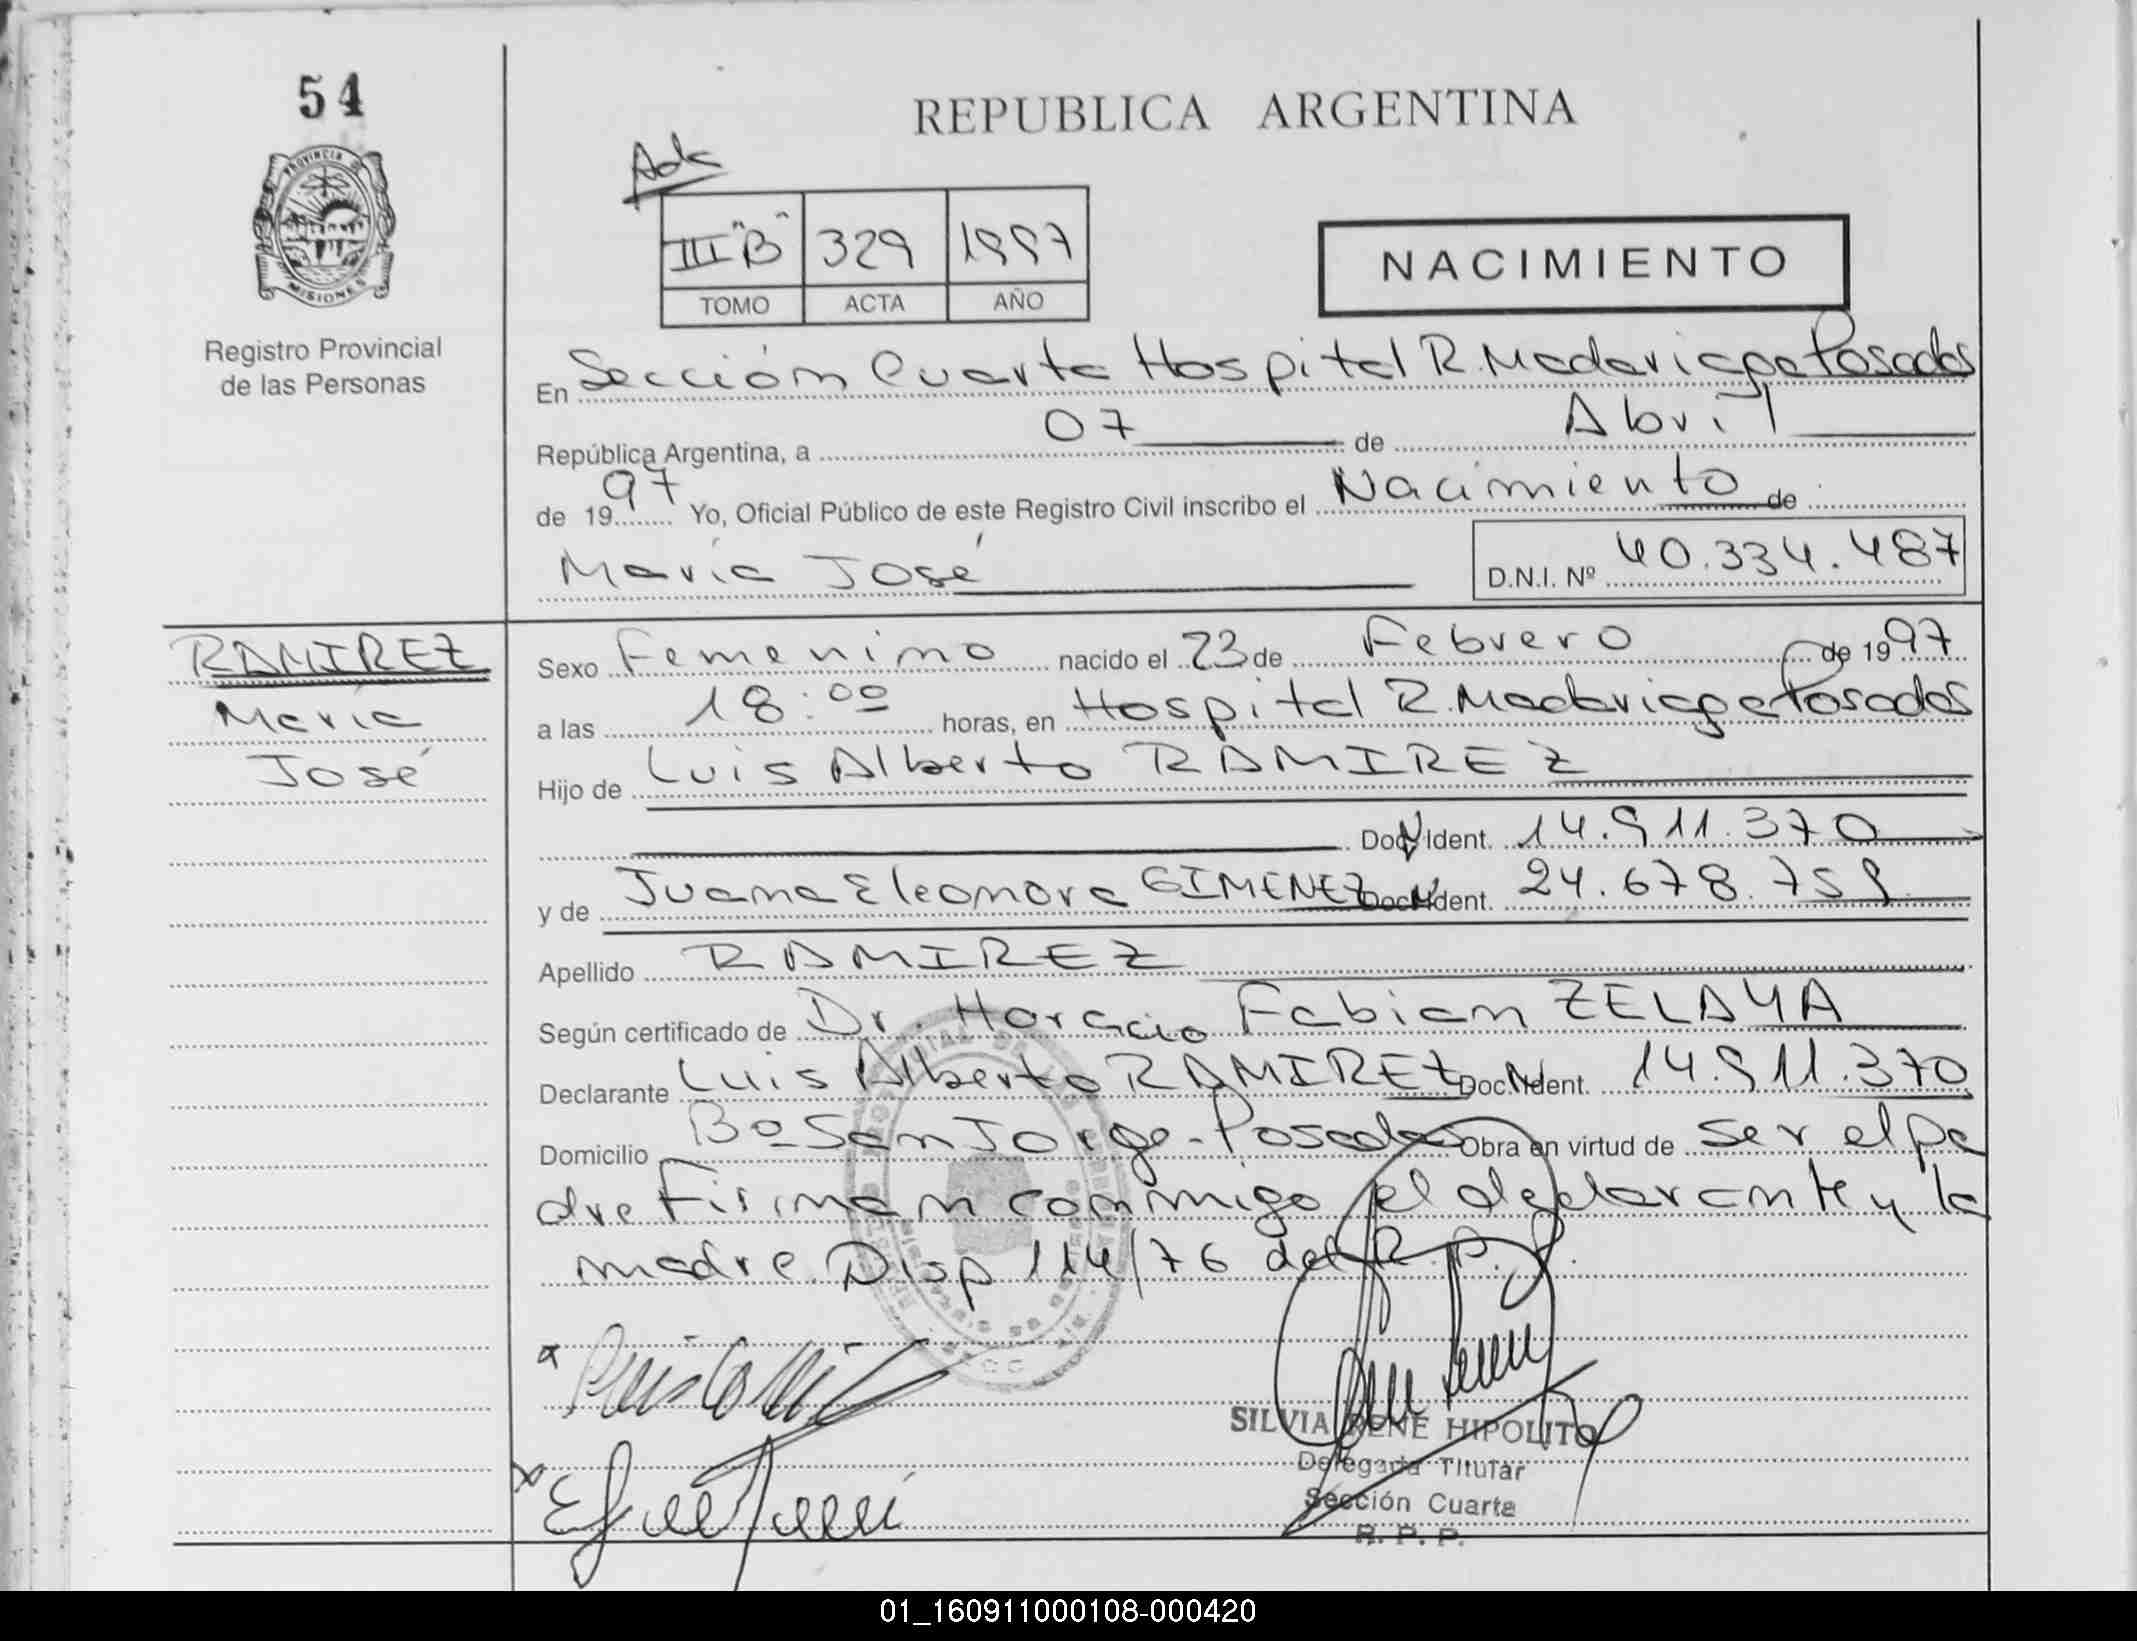 54
REPUBLICA ARGENTINA
PROVINCIA DE
MISIONES
III "B" 329 1997
TOMO ACTA AÑO
NACIMIENTO
Registro Provincial
de las Personas
En Sección Cuarta Hospital R. Madariaga Posadas
República Argentina, a 07 de Abril
de 1997 Yo, Oficial Público de este Registro Civil inscribo el Nacimiento de
María José
D.N.I. Nº 40.334.487
RAMIREZ
María
José
Sexo Femenino nacido el 23 de Febrero de 1997
a las 18:00 horas, en Hospital R. Madariaga Posadas
Hijo de Luis Alberto RAMIREZ
Doc. Ident. 14.911.370
y de Juana Eleonora GIMENEZ Doc. Ident. 24.678.759
Apellido RAMIREZ
Según certificado de Dr. Horacio Fabian ZELAYA
Declarante Luis Alberto RAMIREZ Doc. Ident. 14.911.370
Domicilio Bº San Jorge - Posadas Obra en virtud de ser el pa
dre Firman conmigo el declarante y la
madre. Disp 114/76 del R.P.P.
SILVIA RENE HIPOLITO
Delegada Titular
Sección Cuarta
R. P. P.
01_160911000108-000420